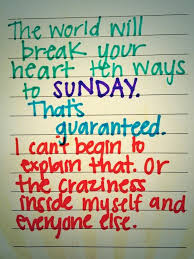 The world will
break your
heart ten ways
to SUNDAY.
That's
guaranteed.
I can't begin to
explain that. Or
the craziness
inside myself and
everyone else.